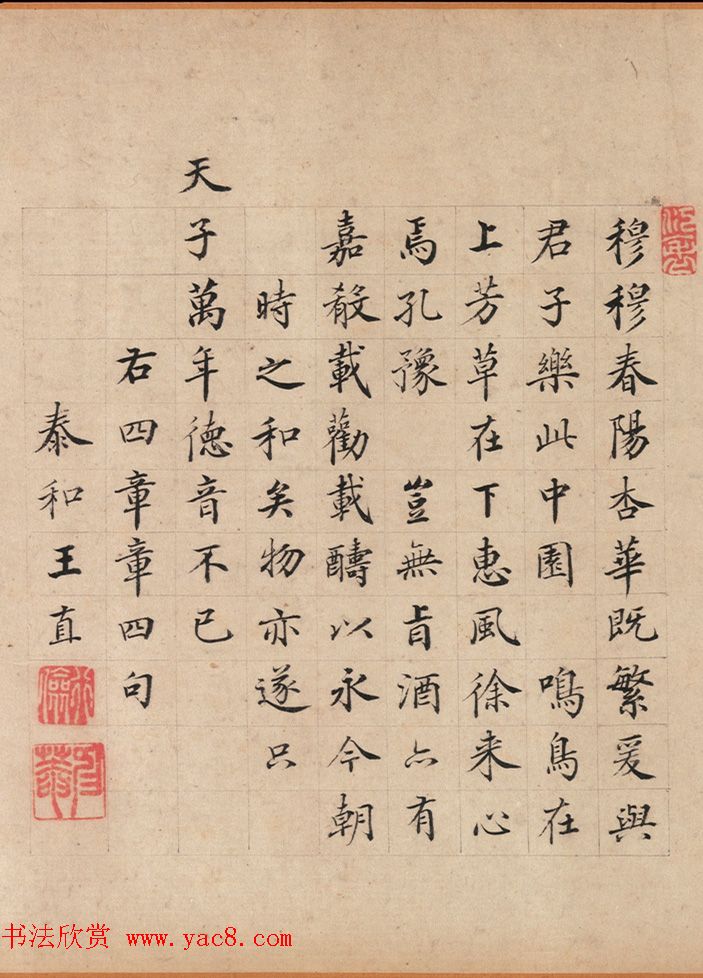 穆穆春陽杏華既繁爰與
君子樂此中園　鳴鳥在
上芳草在下惠風徐来心
焉孔豫　豈無㫖酒亦有
嘉殽載勸載醻以永今朝
時之和矣物亦遂只
天子萬年德音不已
右四章章四句
泰和王直
书法欣赏 www.yac8.com